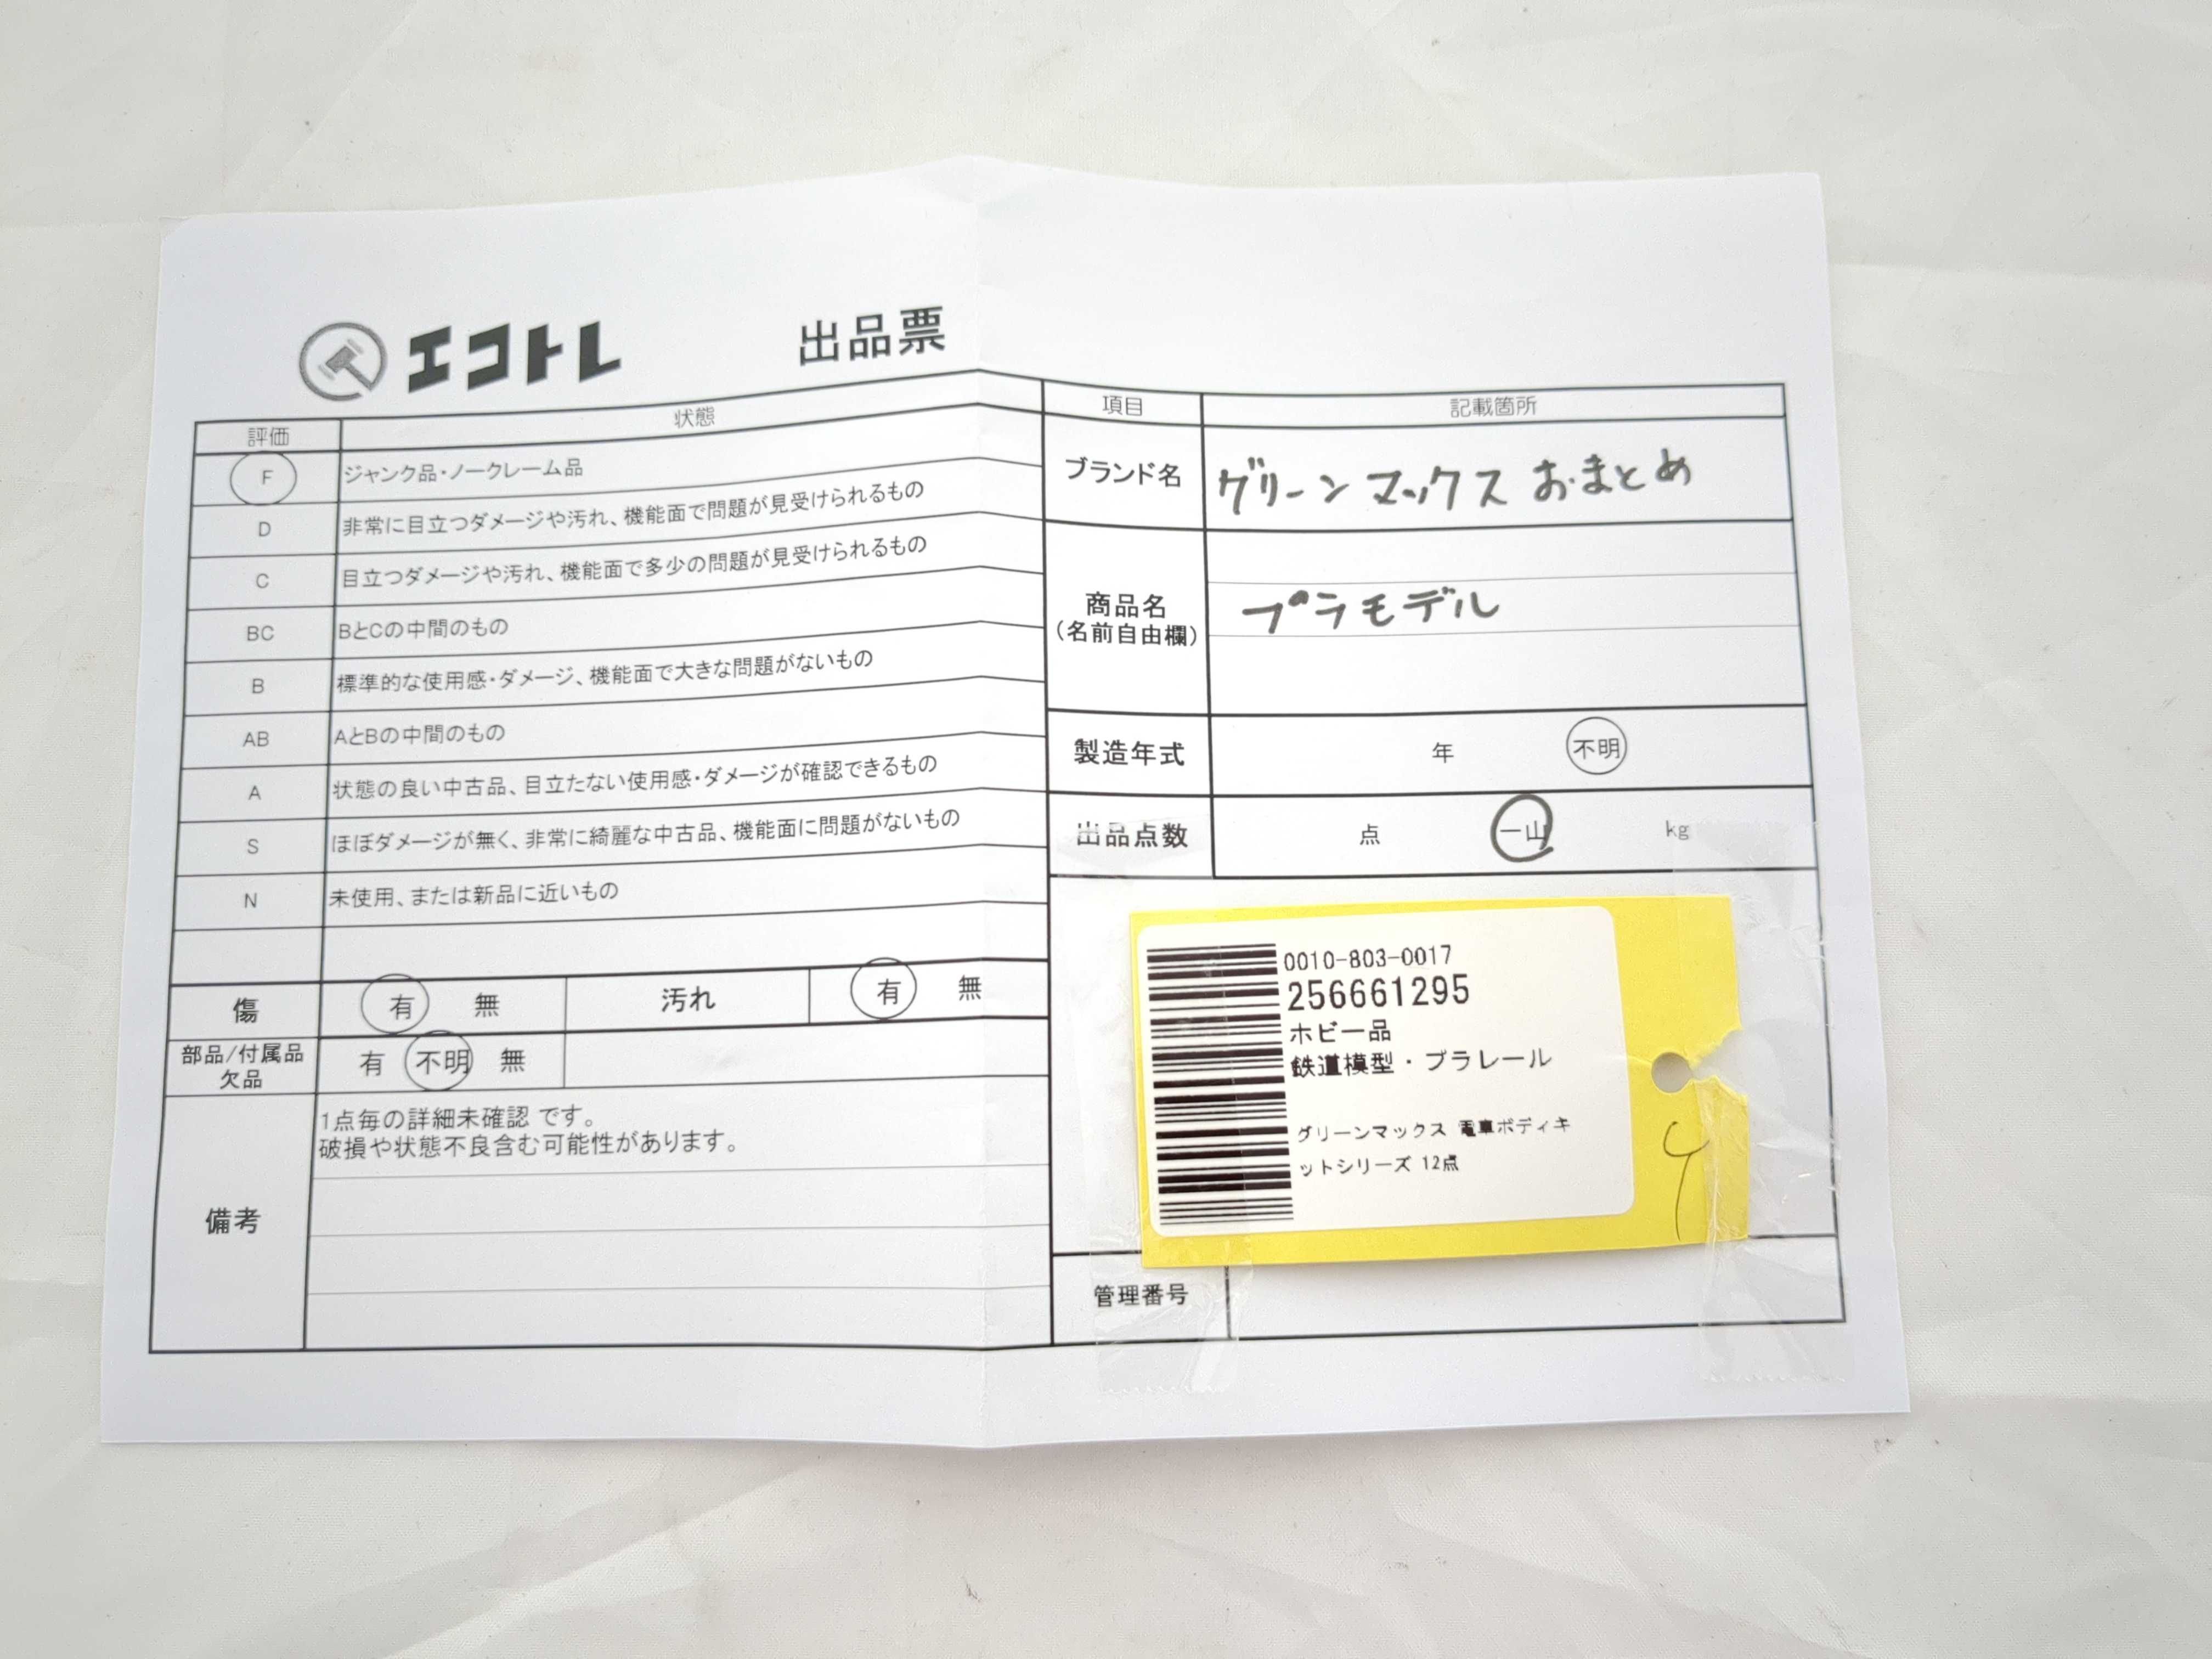 エコトレ
出品票
評価 状態
F ジャンク品・ノークレーム品
D 非常に目立つダメージや汚れ、機能面で問題が見受けられるもの
C 目立つダメージや汚れ、機能面で多少の問題が見受けられるもの
BC BとCの中間のもの
B 標準的な使用感・ダメージ、機能面で大きな問題がないもの
AB AとBの中間のもの
A 状態の良い中古品、目立たない使用感・ダメージが確認できるもの
S ほぼダメージが無く、非常に綺麗な中古品、機能面に問題がないもの
N 未使用、または新品に近いもの
傷 有 無 汚れ 有 無
部品/付属品 有 不明 無
欠品
備考
1点毎の詳細未確認 です。
破損や状態不良含む可能性があります。
項目 記載箇所
ブランド名 グリーンマックス おまとめ
商品名
(名前自由欄)
プラモデル
製造年式 年 不明
出品点数 点 一山 kg
0010-803-0017
256661295
ホビー品
鉄道模型・プラレール
グリーンマックス 電車ボディキ
ットシリーズ 12点
管理番号